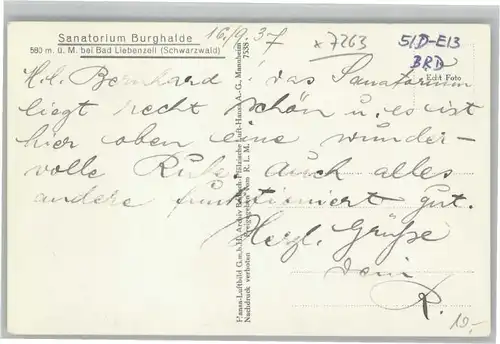 Sanatorium Burghalde
580 m. ü. M. bei Bad Liebenzell (Schwarzwald)
16/9.37
x 7263
51D-E13
BRD
Echt Foto
H. l. Bernhard! das Sanatorium
liegt recht schön u. es ist
hier oben eine wunder-
volle Ruhe. Auch alles
andere funktioniert gut.
Herzl. Grüße
dein
R.
10.-
Hansa-Luftbild G.m.b.H. Archiv Badisch-Pfälzische Luft-Hansa A.-G., Mannheim
Nachdruck verboten Freigegeben vom R. L. M. 7538